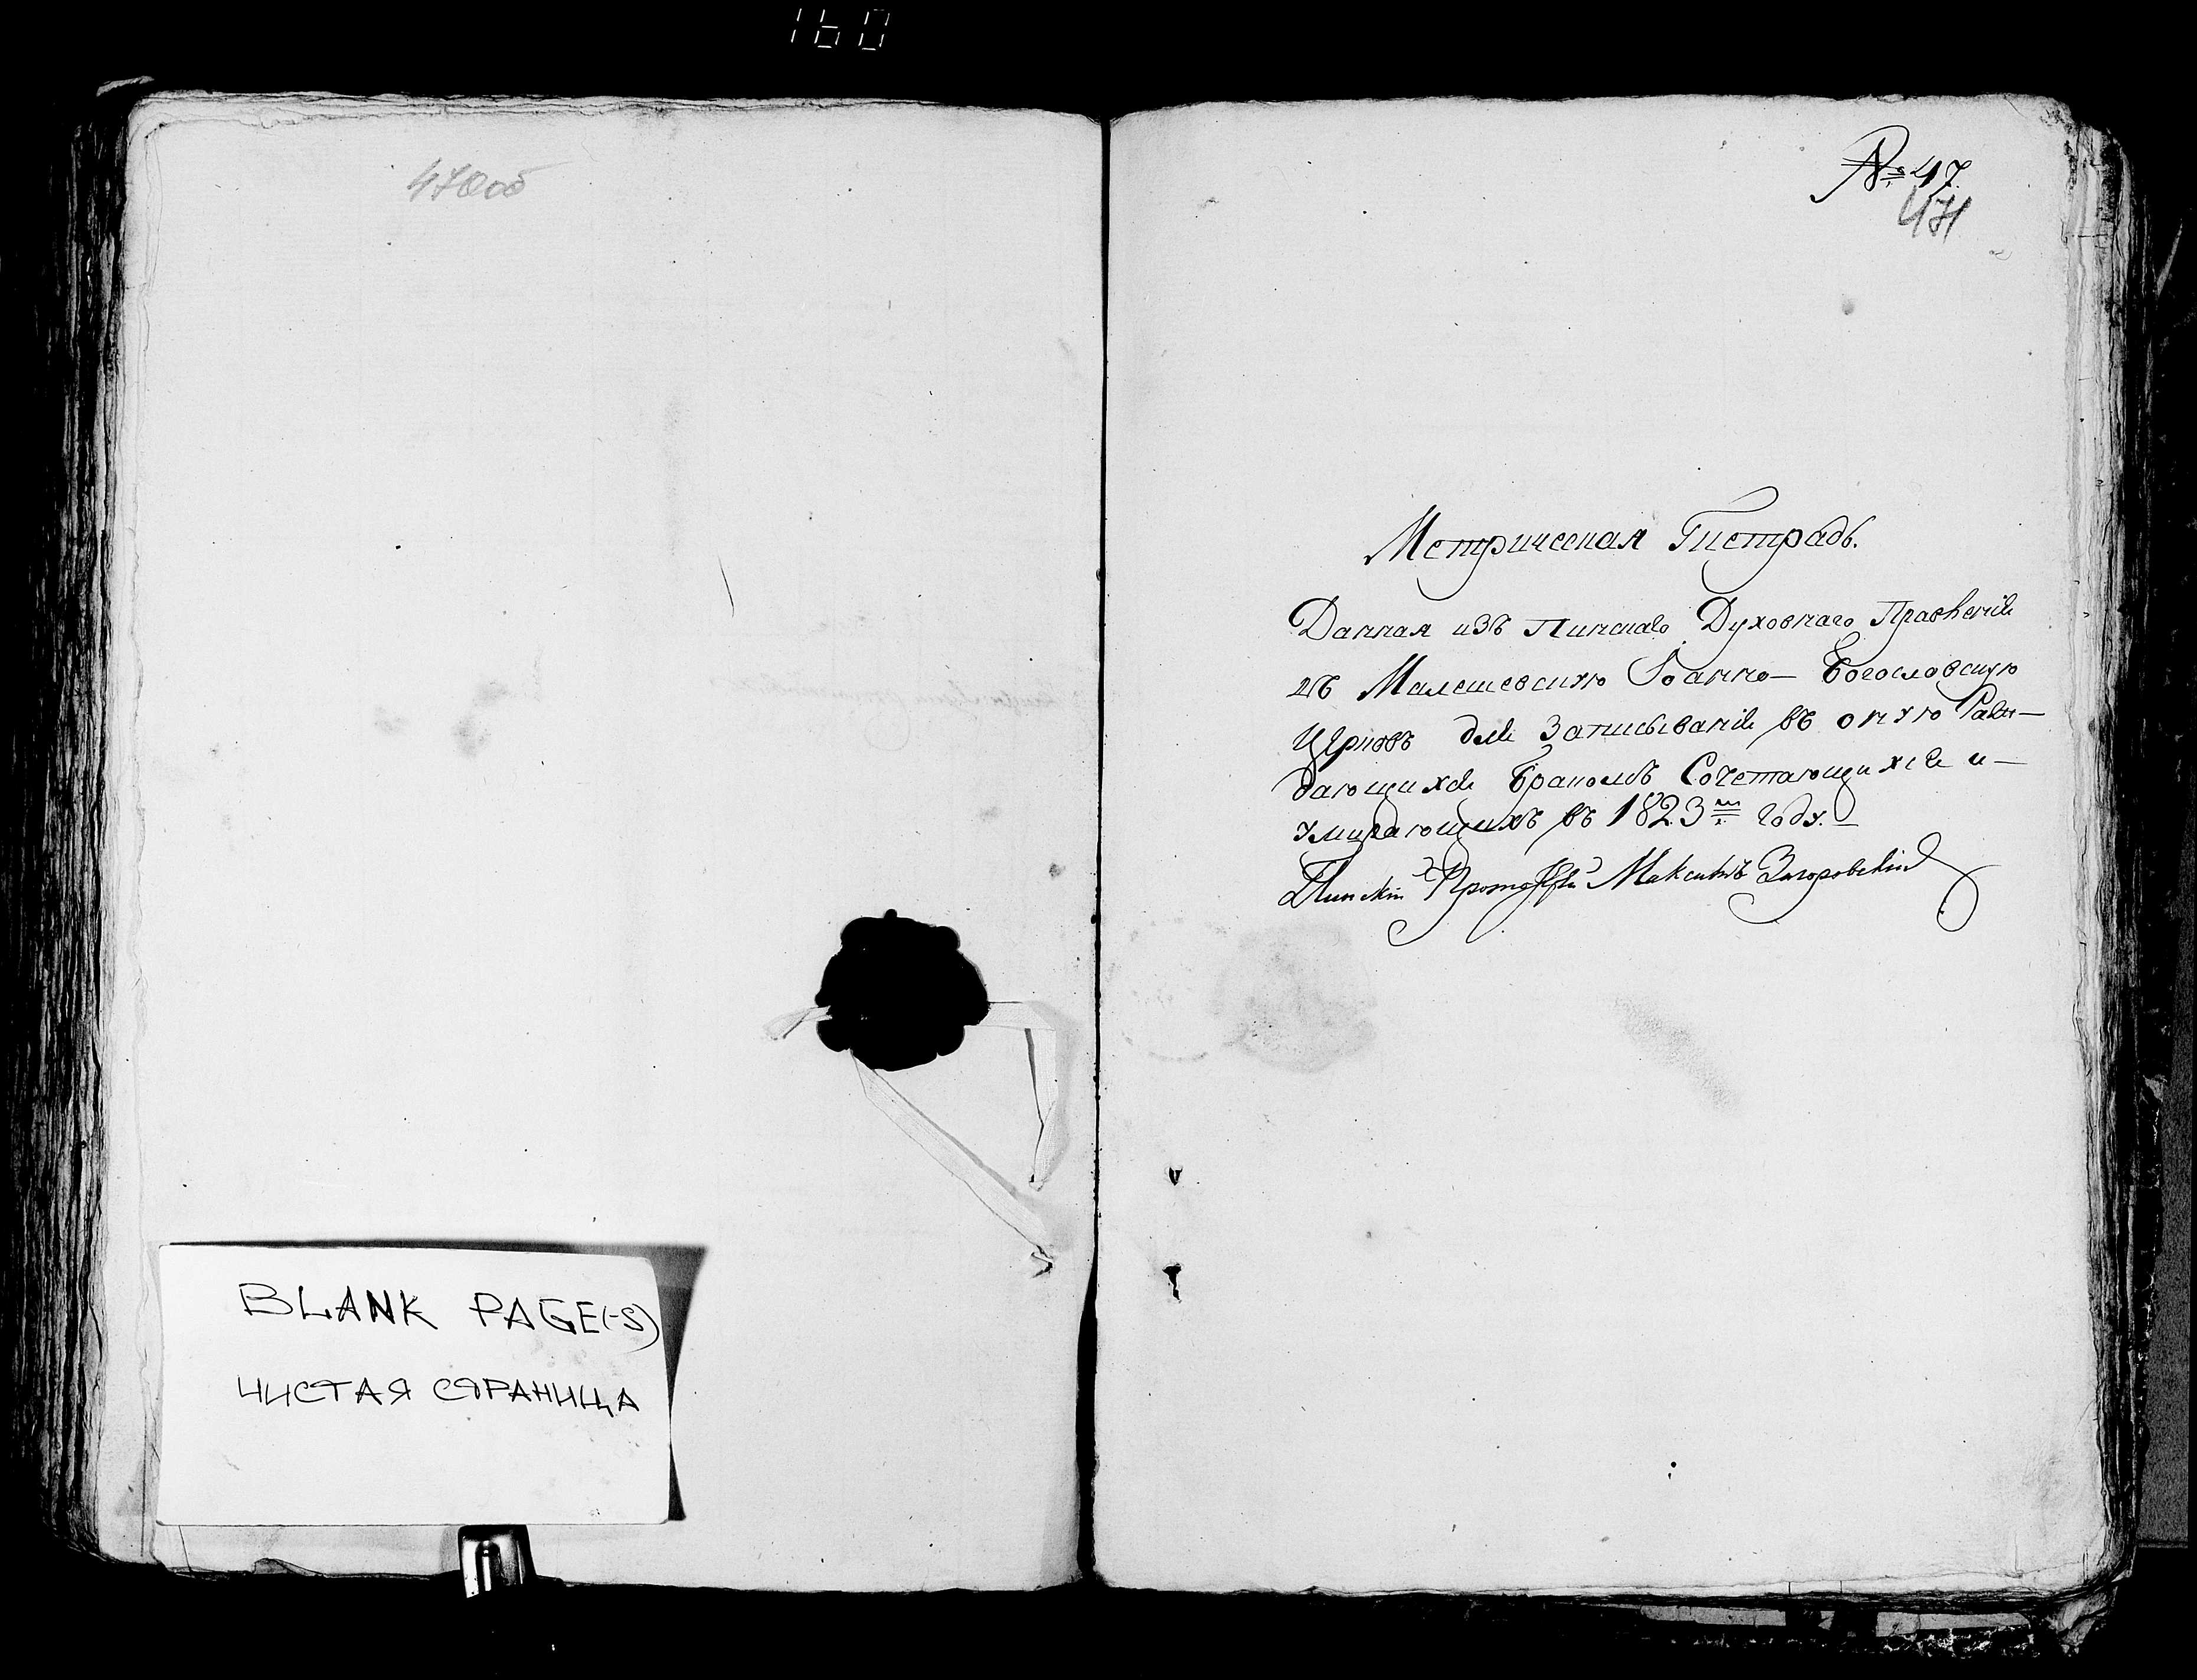 160
470об
BLANK PAGE(-S)
ЧИСТАЯ СТРАНИЦА
№ 47.
471
Метрическая Тетрадь.
Данная изъ Пинскаго Духовнаго Правленія
въ Малешевскую Іоанно- Богословскую
Церковь для Записыванія въ оную Раж-
дающихся Бракомъ Сочетающихся и-
умирающихъ въ 1823м году.-
Пинскій Максимъ Загоровскій